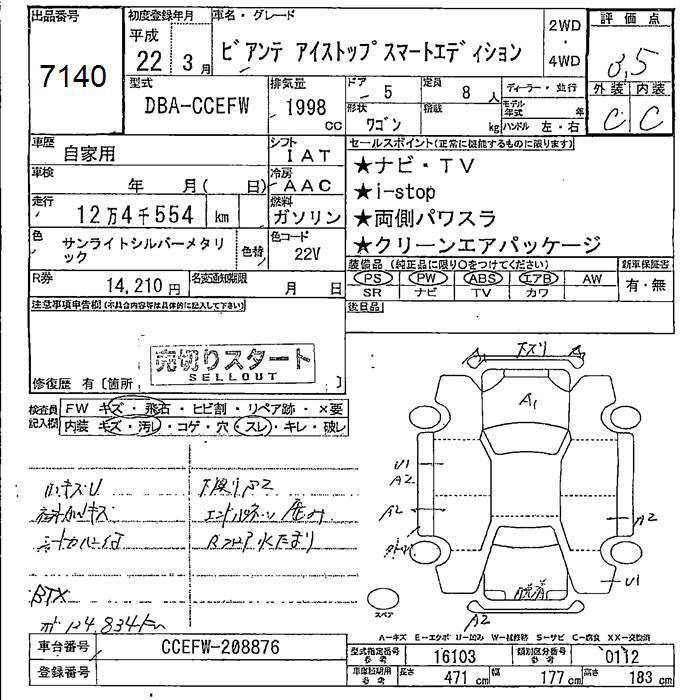 出品番号
7140
初度登録年月
平成
22 3月
車名・グレード
ビアンテ アイストップスマートエディション
2WD
・
4WD
評価点
3,5
外装 内装
C C
型式
DBA-CCEFW
排気量
1998
CC
ドア
5
定員
8 人
ディーラー・並行
形状
ワゴン
積載
kg
モデル年式 年
ハンドル 左・右
車歴
自家用
シフト
IAT
車検
年 月( 日)
冷房
AAC
走行
12万4千554 km
燃料
ガソリン
色
サンライトシルバーメタリック
色替
色コード
22V
R券
14,210円
名変通知期限
月 日
セールスポイント(正常に機能するものに限ります)
★ナビ・TV
★i-stop
★両側パワスラ
★クリーンエアパッケージ
装備品(純正品に限り○をつけてください)
PS PW ABS エアB AW
SR ナビ TV カワ
新車保証書
有・無
後日品
注意事項申告欄(不具合内容等は具体的に記入して下さい)
売切りスタート
SELLOUT
修復歴 有〔箇所 〕
検査員記入欄
FW キズ・飛石・ヒビ割・リペア跡・×要
内装 キズ・汚レ・コゲ・穴・スレ・キレ・破レ
下スリ
A1
U1
A2
A2
A2
U1
A2
スペア
下スリA2
Rフロア水たまり
BTX
A-キズ E-エクボ U-凹み W-補修跡 S-サビ C-腐食 XX-交換済
車台番号
CCEFW-208876
登録番号
型式指定番号
参考
16103
類別区分番号
参考
0112
車庫証明用
参考
長さ
471 cm
幅
177 cm
高さ
183 cm